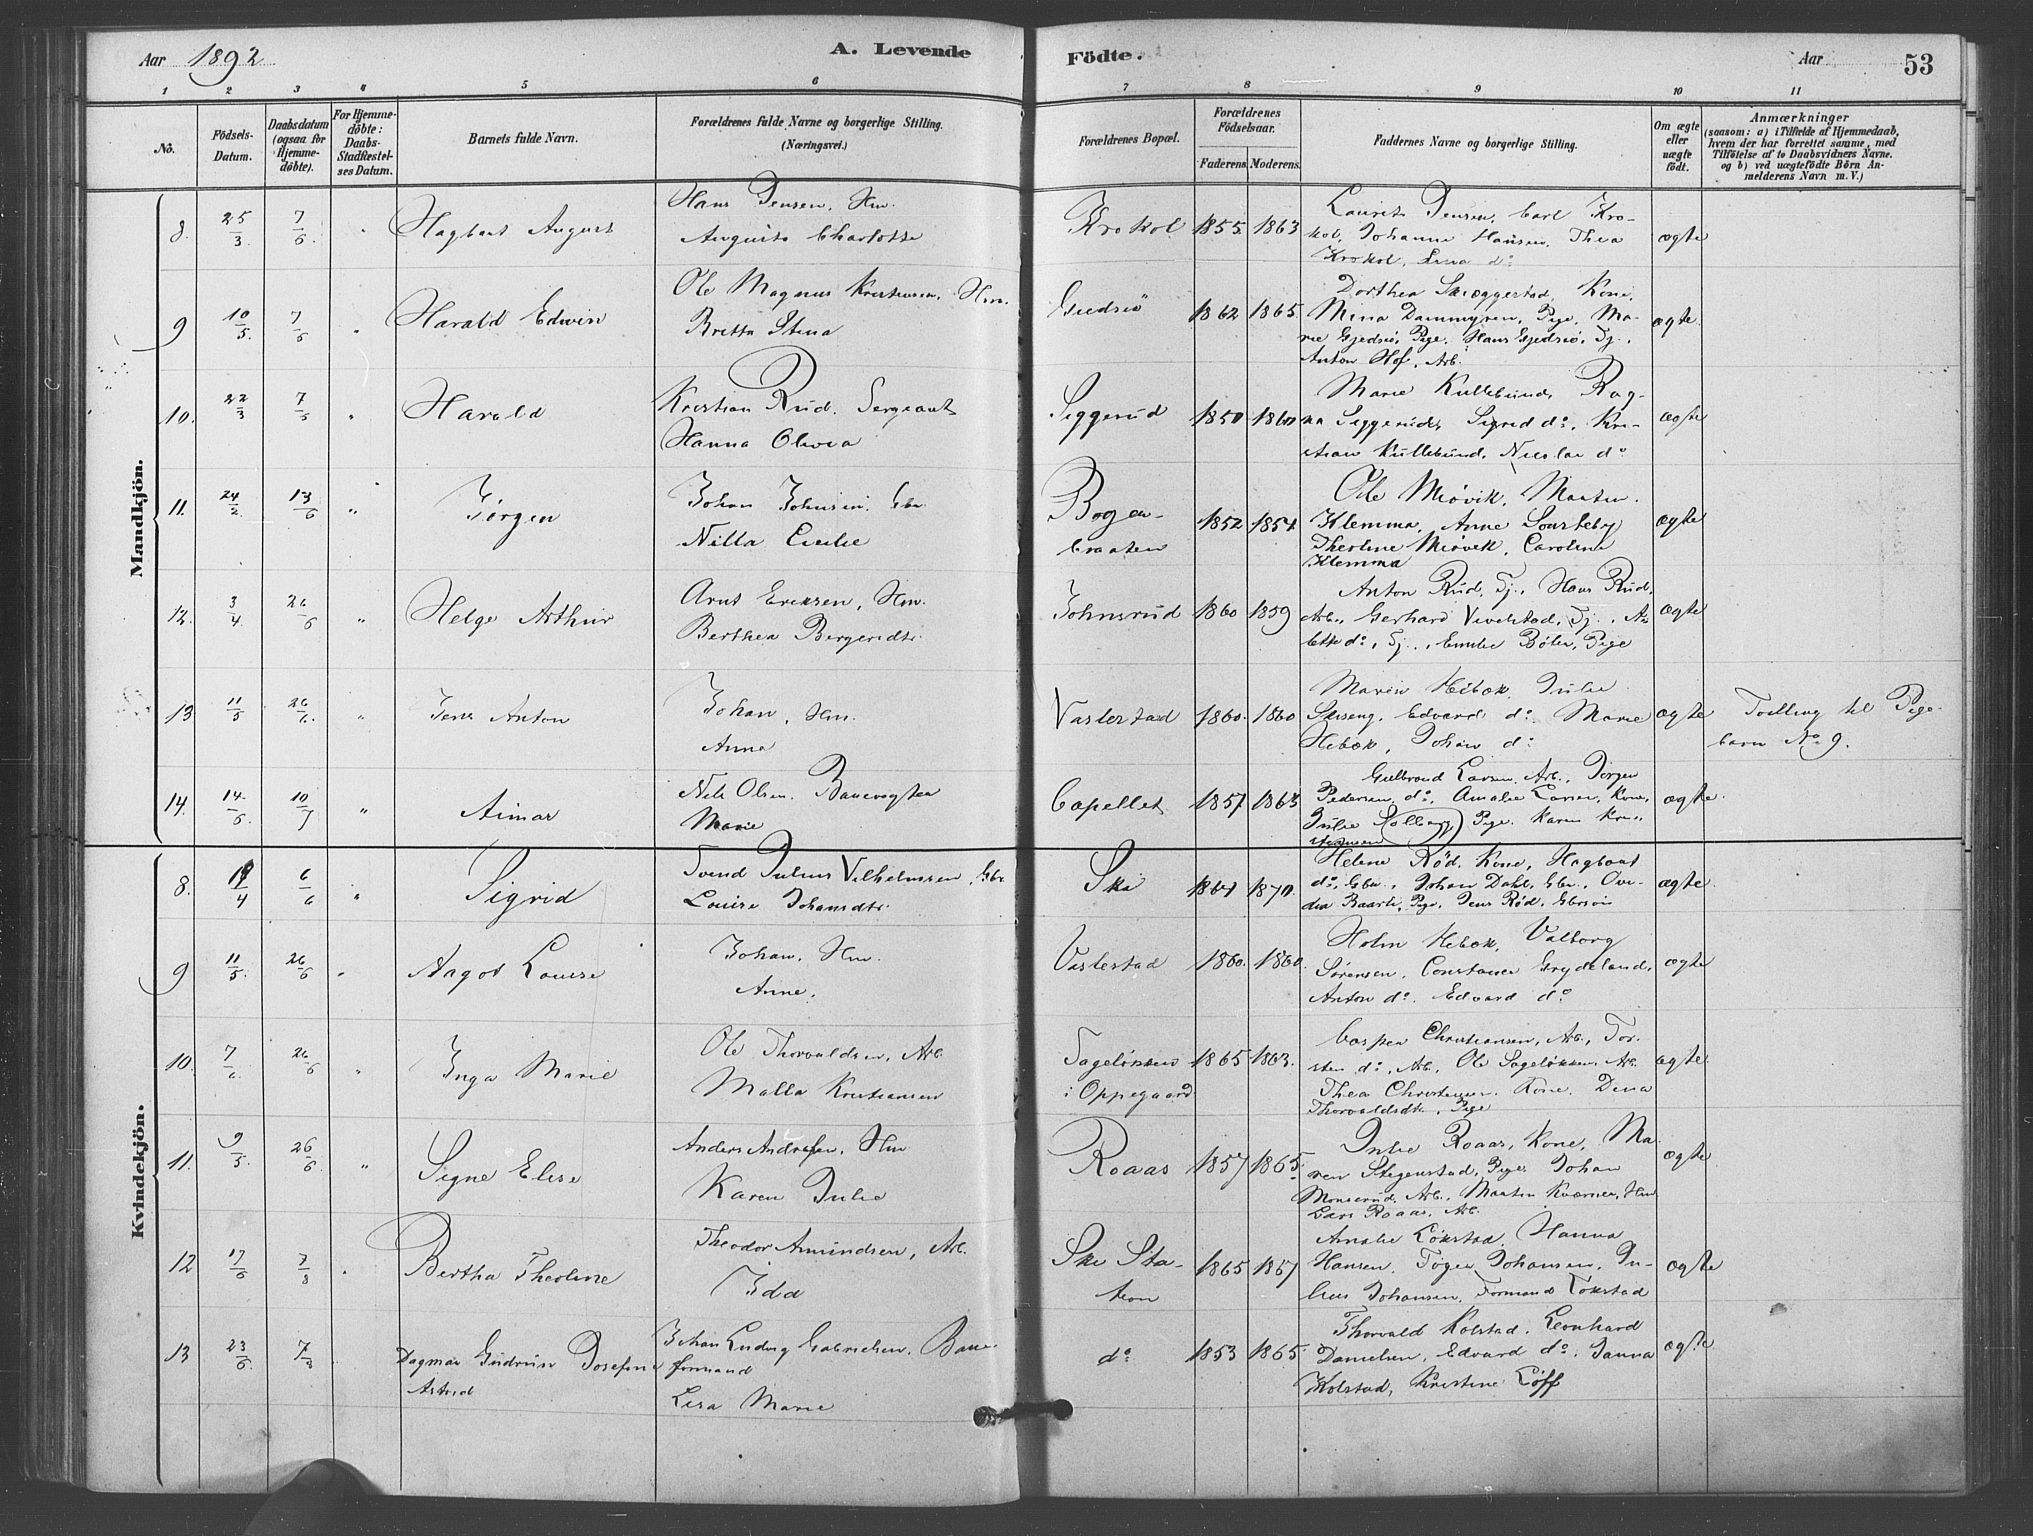 Aar 1892
A. Levende
Födte.
Aar
53
1 2 3 4 5 6 7 8 9 10 11
No.
Födsels-Datum.
Daabsdatum (ogsaa for Hjemmedöbte).
For Hjemmedöbte: Daabs-Stadfæstelses Datum.
Barnets fulde Navn.
Forældrenes fulde Navne og borgerlige Stilling. (Næringsvei.)
Forældrenes Bopæl.
Forældrenes Födselsaar. Faderens. Moderens.
Faddernes Navne og borgerlige Stilling.
Om ægte eller uægte födt.
Anmærkninger (saasom: a) i Tilfælde af Hjemmedaab, hvem der har forrettet samme, med Tilföielse af to Daabsvidners Navne, og b) ved uægtefödte Börn Anmelderens Navn m. V.)
Mandkjön.
8. 25/3 7/6 " Hagbart August
Hans Jensen, Hm.
Augusta Charlotte
Krokol 1855 1863
Laurits Jensen, Carl Kro-
kol, Johanne Hansen, Thea
Krokol, Lina do
ægte
9 10/5 7/6 " Harald Edwin
Ole Magnus Kristiansen, Hm.
Britta Stina
Gjedsiö 1862 1865
Dorthea Skeggestad, Kone,
Mina Dammyren, Pige, Ma-
rie Gjedsiö, Pige, Hans Gjedsiö, Tj.,
Anton Hof, Arb.
ægte
10. 22/3 7/6 " Harald
Kristian Rud, Sergeant
Hanna Olivia
Siggerud 1850 1860
Marie Kullebund, Rag-
na Siggerud, Sigrid do, Kri-
stian Kullebund, Nicolai do
ægte
11. 24/2 13/6 " Jörgen
Johan Johnsen, Gbr.
Nilla Cecilie
Bogen-
braaten 1852 1854
Ole Miövik, Martin
Klemma, Anne Sourteby
Theoline Miövik, Caroline
Klemma
ægte
12. 3/4 26/6 " Helge Arthur
Arnt Eriksen, Hm.
Berthea Bergersdtr.
Johnsrud 1860 1859
Anton Rud, Tj., Hans Rud,
Arb., Gerhard Vevelstad, Tj.,
do, Tj., Emilie Böler, Pige
ægte
13 11/5 26/6 " Jens Anton
Johan, Hm.
Anne
Vaslestad 1860 1860
Maren Hebæk, Julie
Edvard do Marie
Hebæk, Johan do
ægte
Tvilling til Pige-
barn No 9.
14. 14/6 10/7 " Aimar
Nils Olsen, Banevogter
Marie
Capellet 1857 1863
Gulbrand Larsen, Arb., Jörgen
Pedersen do, Amalie Larsen, Kone,
Julie Solberg, Pige, Karen Kri-
stensen
ægte
Kvindekjön.
8. 14/4 6/6 " Sigrid
Svend Julius Vilhelmsen, Gbr.
Louise Johansdtr.
Ski 1867 1870
Helene Röd, Kone, Hagbart
do, Gbr., Johan Dahl, Gbr., Ovi-
dia Baarli, Pige, Jens Röd, Gbrsön
ægte
9 11/5 26/6 " Aagot Louise
Johan, Hm.
Anne.
Vaslestad 1860 1860
Holm Hebæk, Valborg
Sörensen, Constance Grydeland,
Anton do Edvard do
ægte
10. 7/6 26/6 " Inga Marie
Ole Thorvaldsen, Arb.
Malla Kristiansen
Sagelökken
i Oppegaard 1865 1863
Casper Christiansen, Arb., Tor-
sten do, Arb., Ole Sagelökken, Arb.
Thea Christensen, Kone, Dina
Thorvaldsdtr., Pige
ægte
11. 9/5 26/6 " Signe Elise
Anders Andresen, Hm
Karen Julie
Roaas 1857 1865
Julie Roaas, Kone, Ma-
ren Stegenstad, Pige, Johan
Monserud, Arb., Martin Kværner, Hm
Lars Roaas, Arb.
ægte
12 17/6 7/8 " Bertha Theoline
Theodor Amundsen, Arb.
Ida
Ski Sta-
tion 1865 1867
Amalie Lökstad, Hanna
Hansen, Töger Johansen, Ju-
lius Johansen,
ægte
13 23/6 7/8 Dagmar Gudrun Josefine
Astrid
Johan Ludvig Gabrielsen, Bane-
formand
Lisa Marie
do 1853 1865
Thorvald Kolstad, Leonhard
Danielsen, Edvard do, Janna
Kolstad, Kristine Löff
ægte